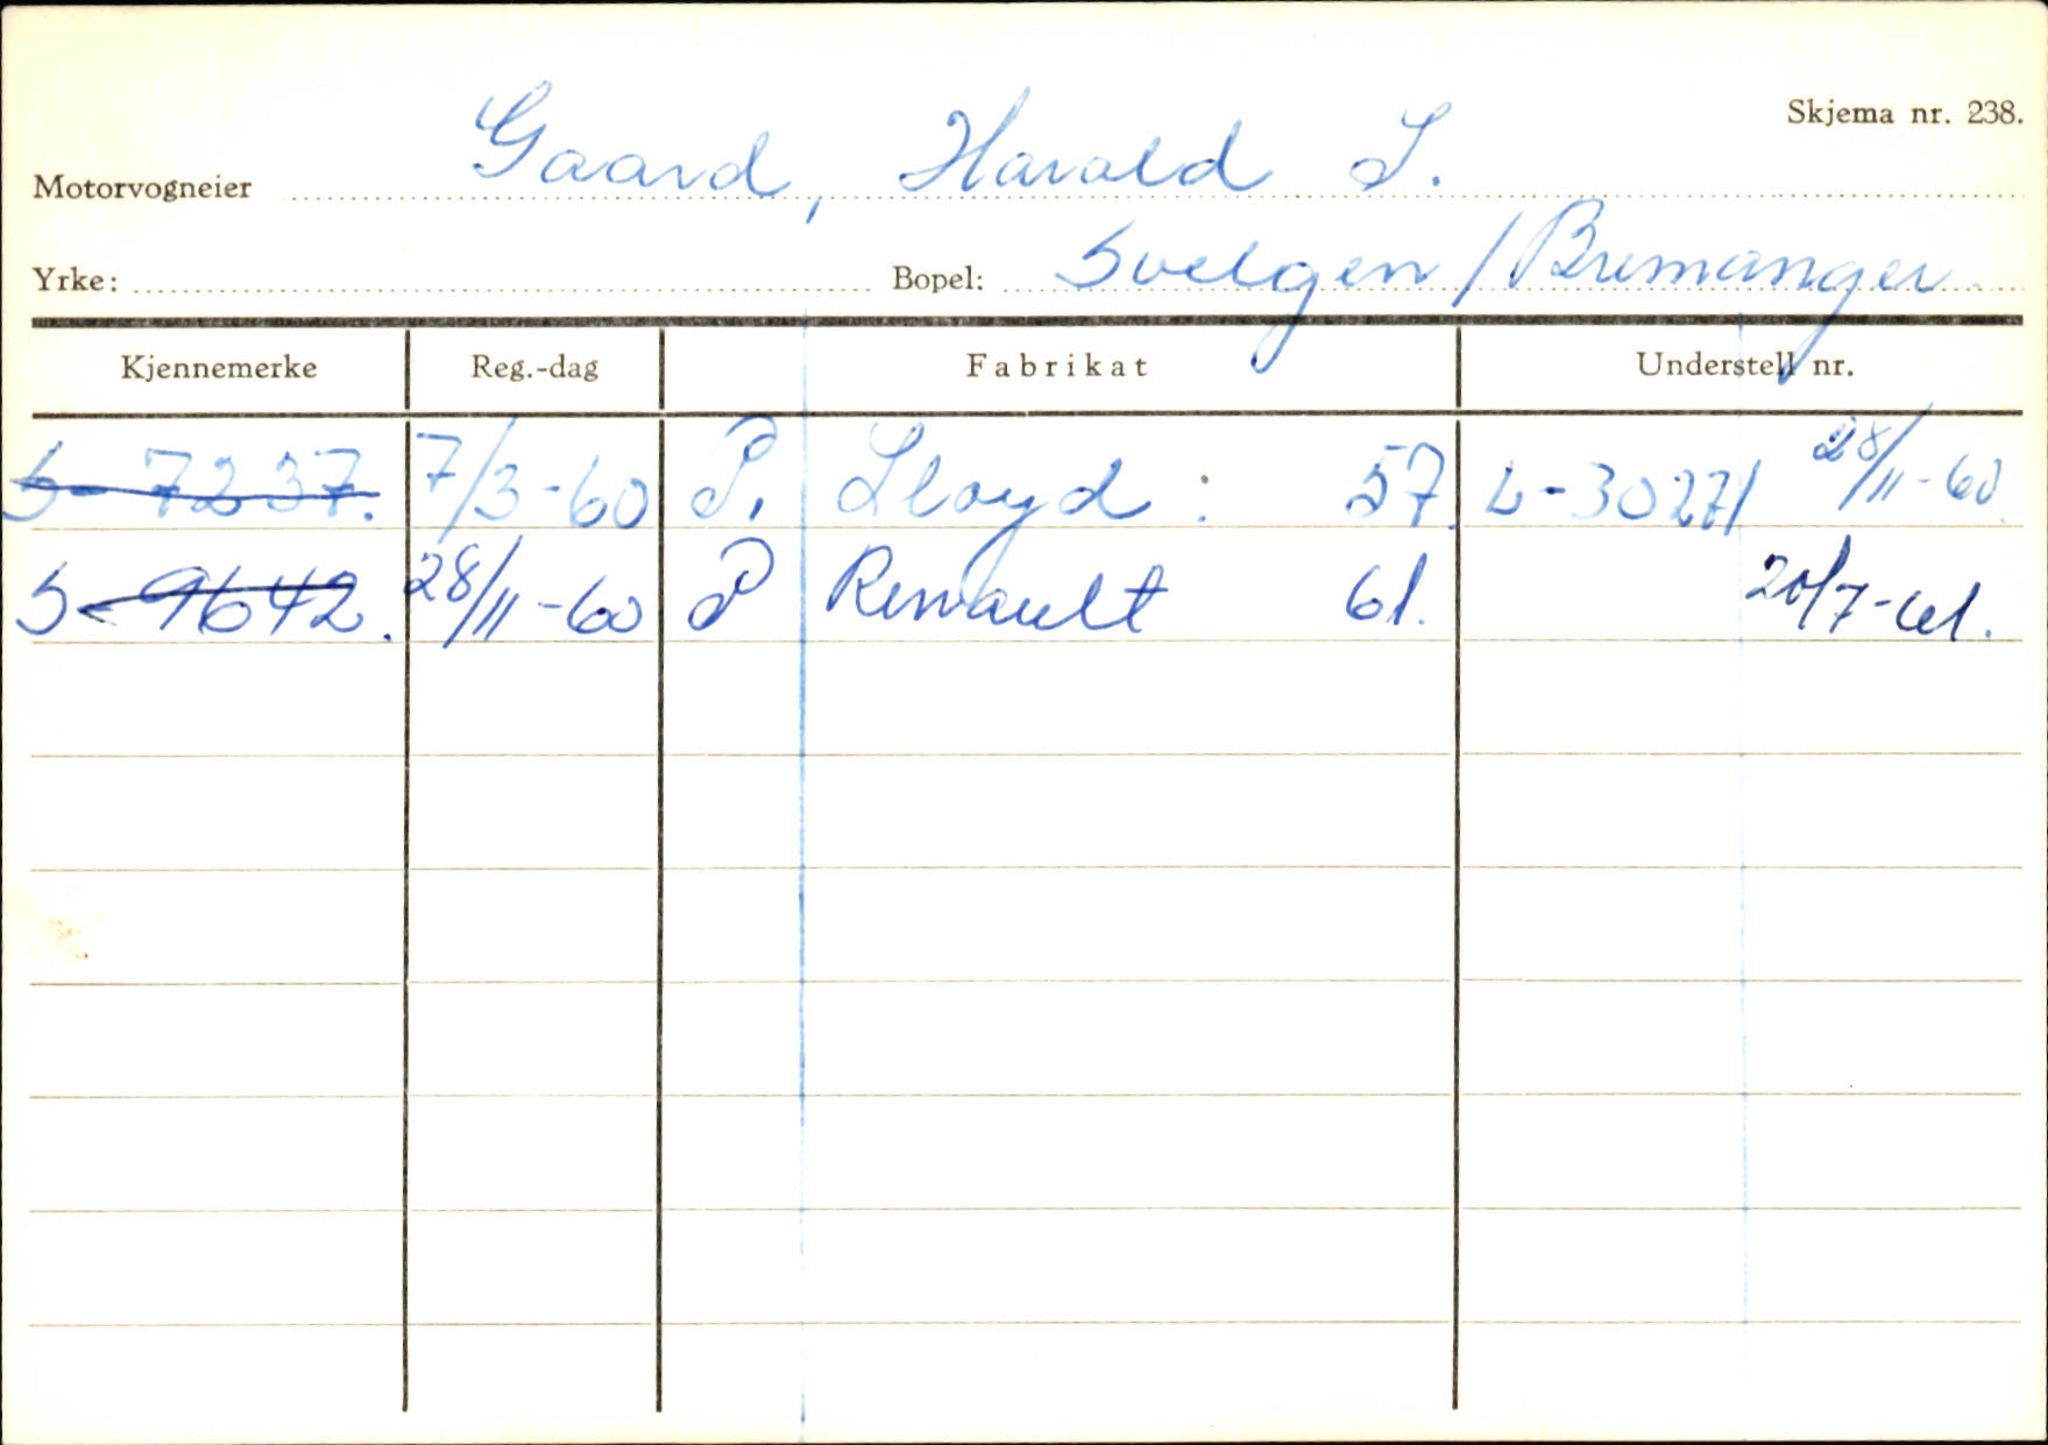 Skjema nr. 238.
Motorvogneier Gaard, Harald S.
Yrke: Bopel: Svelgen / Bremanger
Kjennemerke Reg.-dag Fabrikat Understell nr.
S- 7237. 7/3-60 P. Lloyd : 57. L-30271 28/11-60
S- 9642. 28/11-60 P Renault 61. 20/7-61.